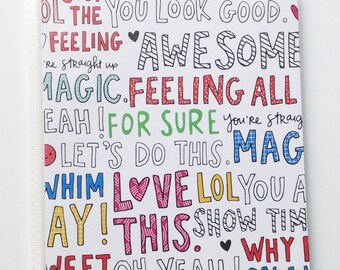 OL THE YOU LOOK GOOD.
FEELING AWESOME
you're straight up
MAGIC. FEELING ALL
EAH! FOR SURE you're straight
LET'S DO THIS. MAG
WHIM LOVE LOL YOU A
AY! THIS. SHOW TIM
WEET OH YEAH! WHY